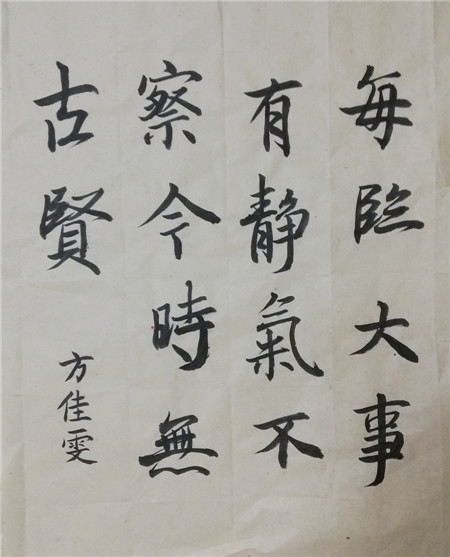 每臨大事
有静氣不
察今時無
古賢
方佳雯